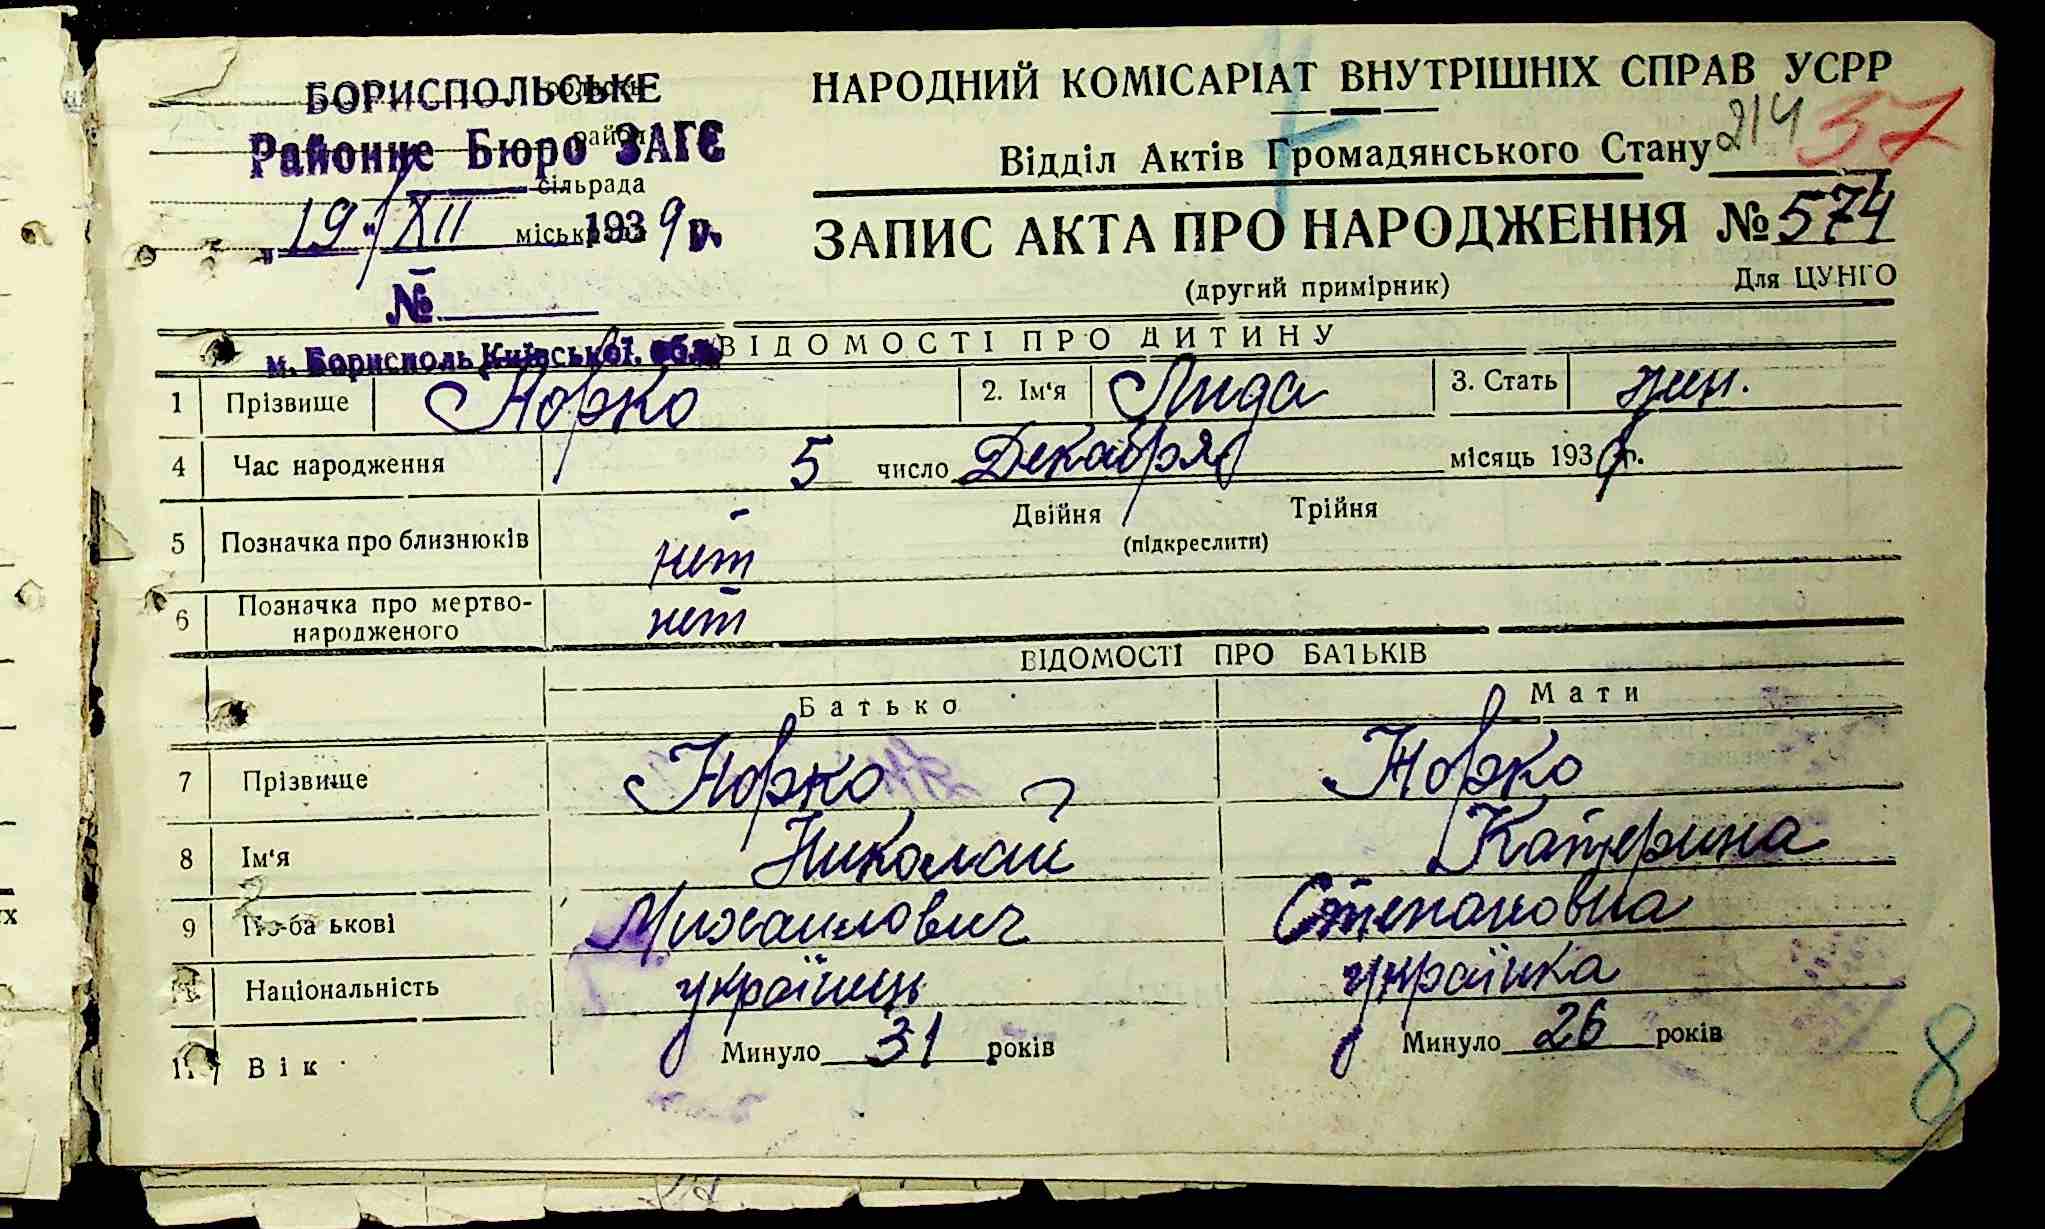 БОРИСПОЛЬСЬКЕ
Районне Бюро ЗАГС
район
сільрада
"19" XII 1939 р.
№
м. Борисполь Київської обл.
НАРОДНИЙ КОМІСАРІАТ ВНУТРІШНІХ СПРАВ УСРР
Відділ Актів Громадянського Стану 214 37
ЗАПИС АКТА ПРО НАРОДЖЕННЯ № 574
(другий примірник) Для ЦУНГО
ВІДОМОСТІ ПРО ДИТИНУ
1 Прізвище Норко 2. Ім'я Лида 3. Стать жін.
4 Час народження 5 число Декабря місяць 1939 р.
5 Позначка про близнюків нет Двійня Трійня
(підкреслити)
6 Позначка про мертво-
народженого нет
ВІДОМОСТІ ПРО БАТЬКІВ
Батько Мати
7 Прізвище Норко Норко
8 Ім'я Николай Катерина
9 По-ба ькові Михайлович Степановна
Національність українець українка
11 Вік Минуло 31 років Минуло 26 років
8